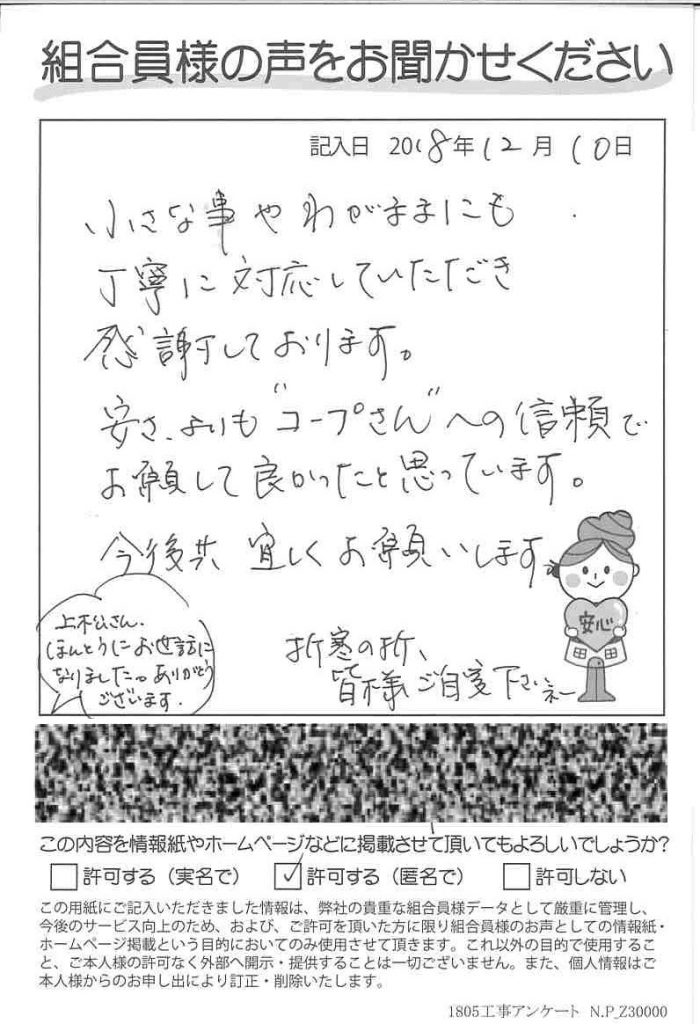 組合員様の声をお聞かせください
記入日 2018年12月10日
小さな事やわがままにも
丁寧に対応していただき
感謝しております。
安さ、よりも"コープさん"への信頼で
お願して良かったと思っています。
今後共 宜しくお願いします。
安心
上松さん、
ほんとうにお世話に
なりました。ありがとう
ございます。
折寒の折、
皆様ご自愛下さいネー
この内容を情報紙やホームページなどに掲載させて頂いてもよろしいでしょうか?
□許可する（実名で） ☑許可する（匿名で） □許可しない
この用紙にご記入いただきました情報は、弊社の貴重な組合員様データとして厳重に管理し、
今後のサービス向上のため、および、ご許可を頂いた方に限り組合員様のお声としての情報紙・
ホームページ掲載という目的においてのみ使用させて頂きます。これ以外の目的で使用するこ
と、ご本人様の許可なく外部へ開示・提供することは一切ございません。また、個人情報はご
本人様からのお申し出により訂正・削除いたします。
1805工事アンケート N.P_Z30000